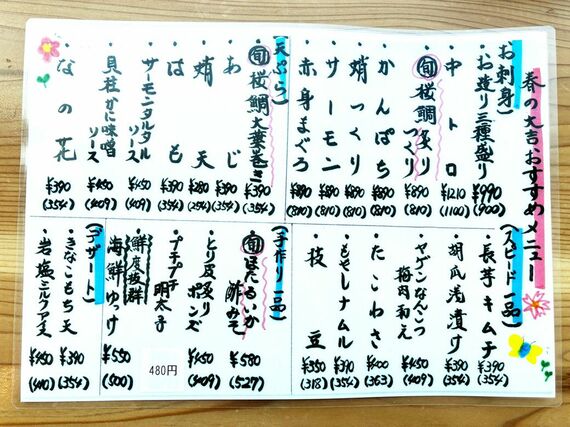 春の大吉おすすめメニュー
お刺身)
・お造り三種盛り ¥990 (900)
・中トロ ¥1210 (1100)
・旬桜鯛炙りつくり ¥890 (810)
・かんぱち ¥890 (810)
・蛸つくり ¥890 (810)
・サーモン ¥890 (810)
・赤身まぐろ ¥890 (810)
天ぷら)
・旬桜鯛大葉巻き ¥390 (354)
・あじ ¥390 (354)
・蛸天 ¥280 (254)
・はも ¥390 (354)
・サーモンタルタルソース ¥450 (409)
・貝柱かに味噌ソース ¥450 (409)
・なの花 ¥390 (354)
(スピード一品)
・長芋キムチ ¥390 (354)
・胡瓜浅漬け ¥390 (354)
・ヤゲンなんこつ梅肉和え ¥450 (409)
・たこわさ ¥400 (363)
・もやしナムル ¥390 (354)
・枝豆 ¥350 (318)
(手作り一品)
・旬ほたるいか酢みそ ¥580 (527)
・とり皮炙りポンズ ¥450 (409)
・プチプチ明太子 480円
・鮮度抜群海鮮ゆっけ ¥550 (500)
(デザート)
・きなこもち天 ¥390 (354)
・岩塩ミルクアイス ¥450 (410)